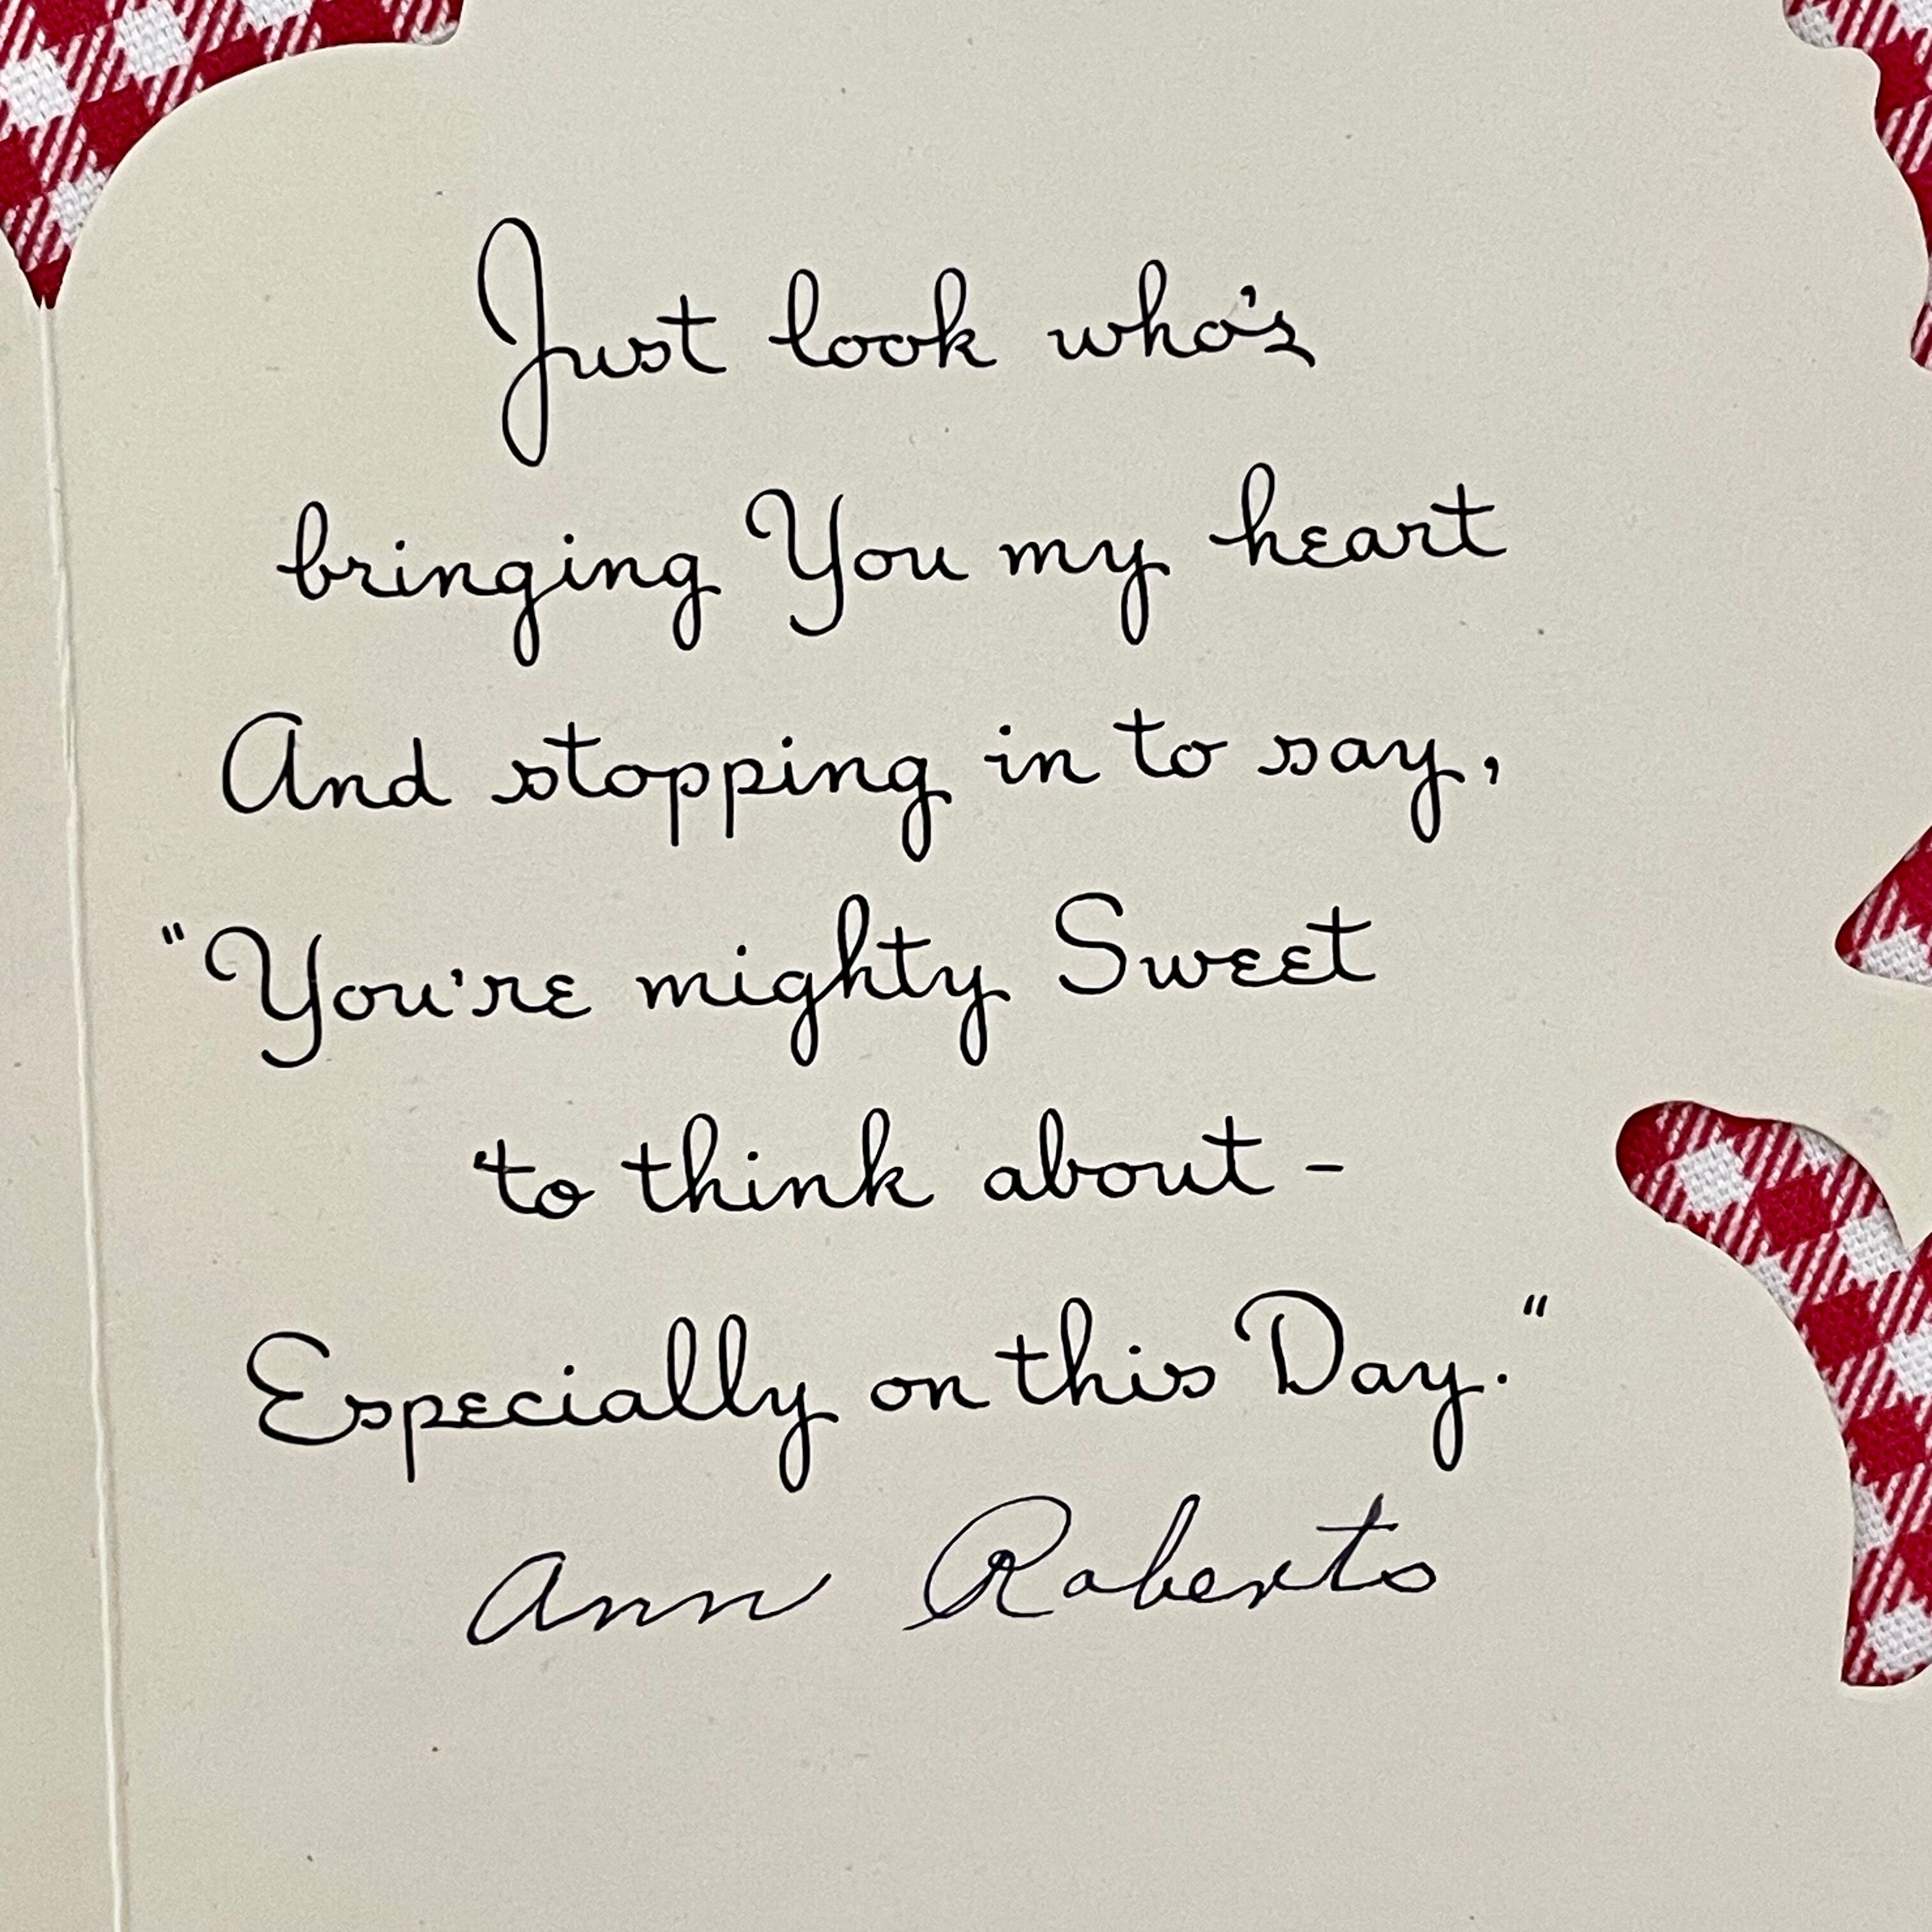 Just look who's
bringing You my heart
And stopping in to say,
"You're mighty Sweet
to think about -
Especially on this Day."
Ann Roberts